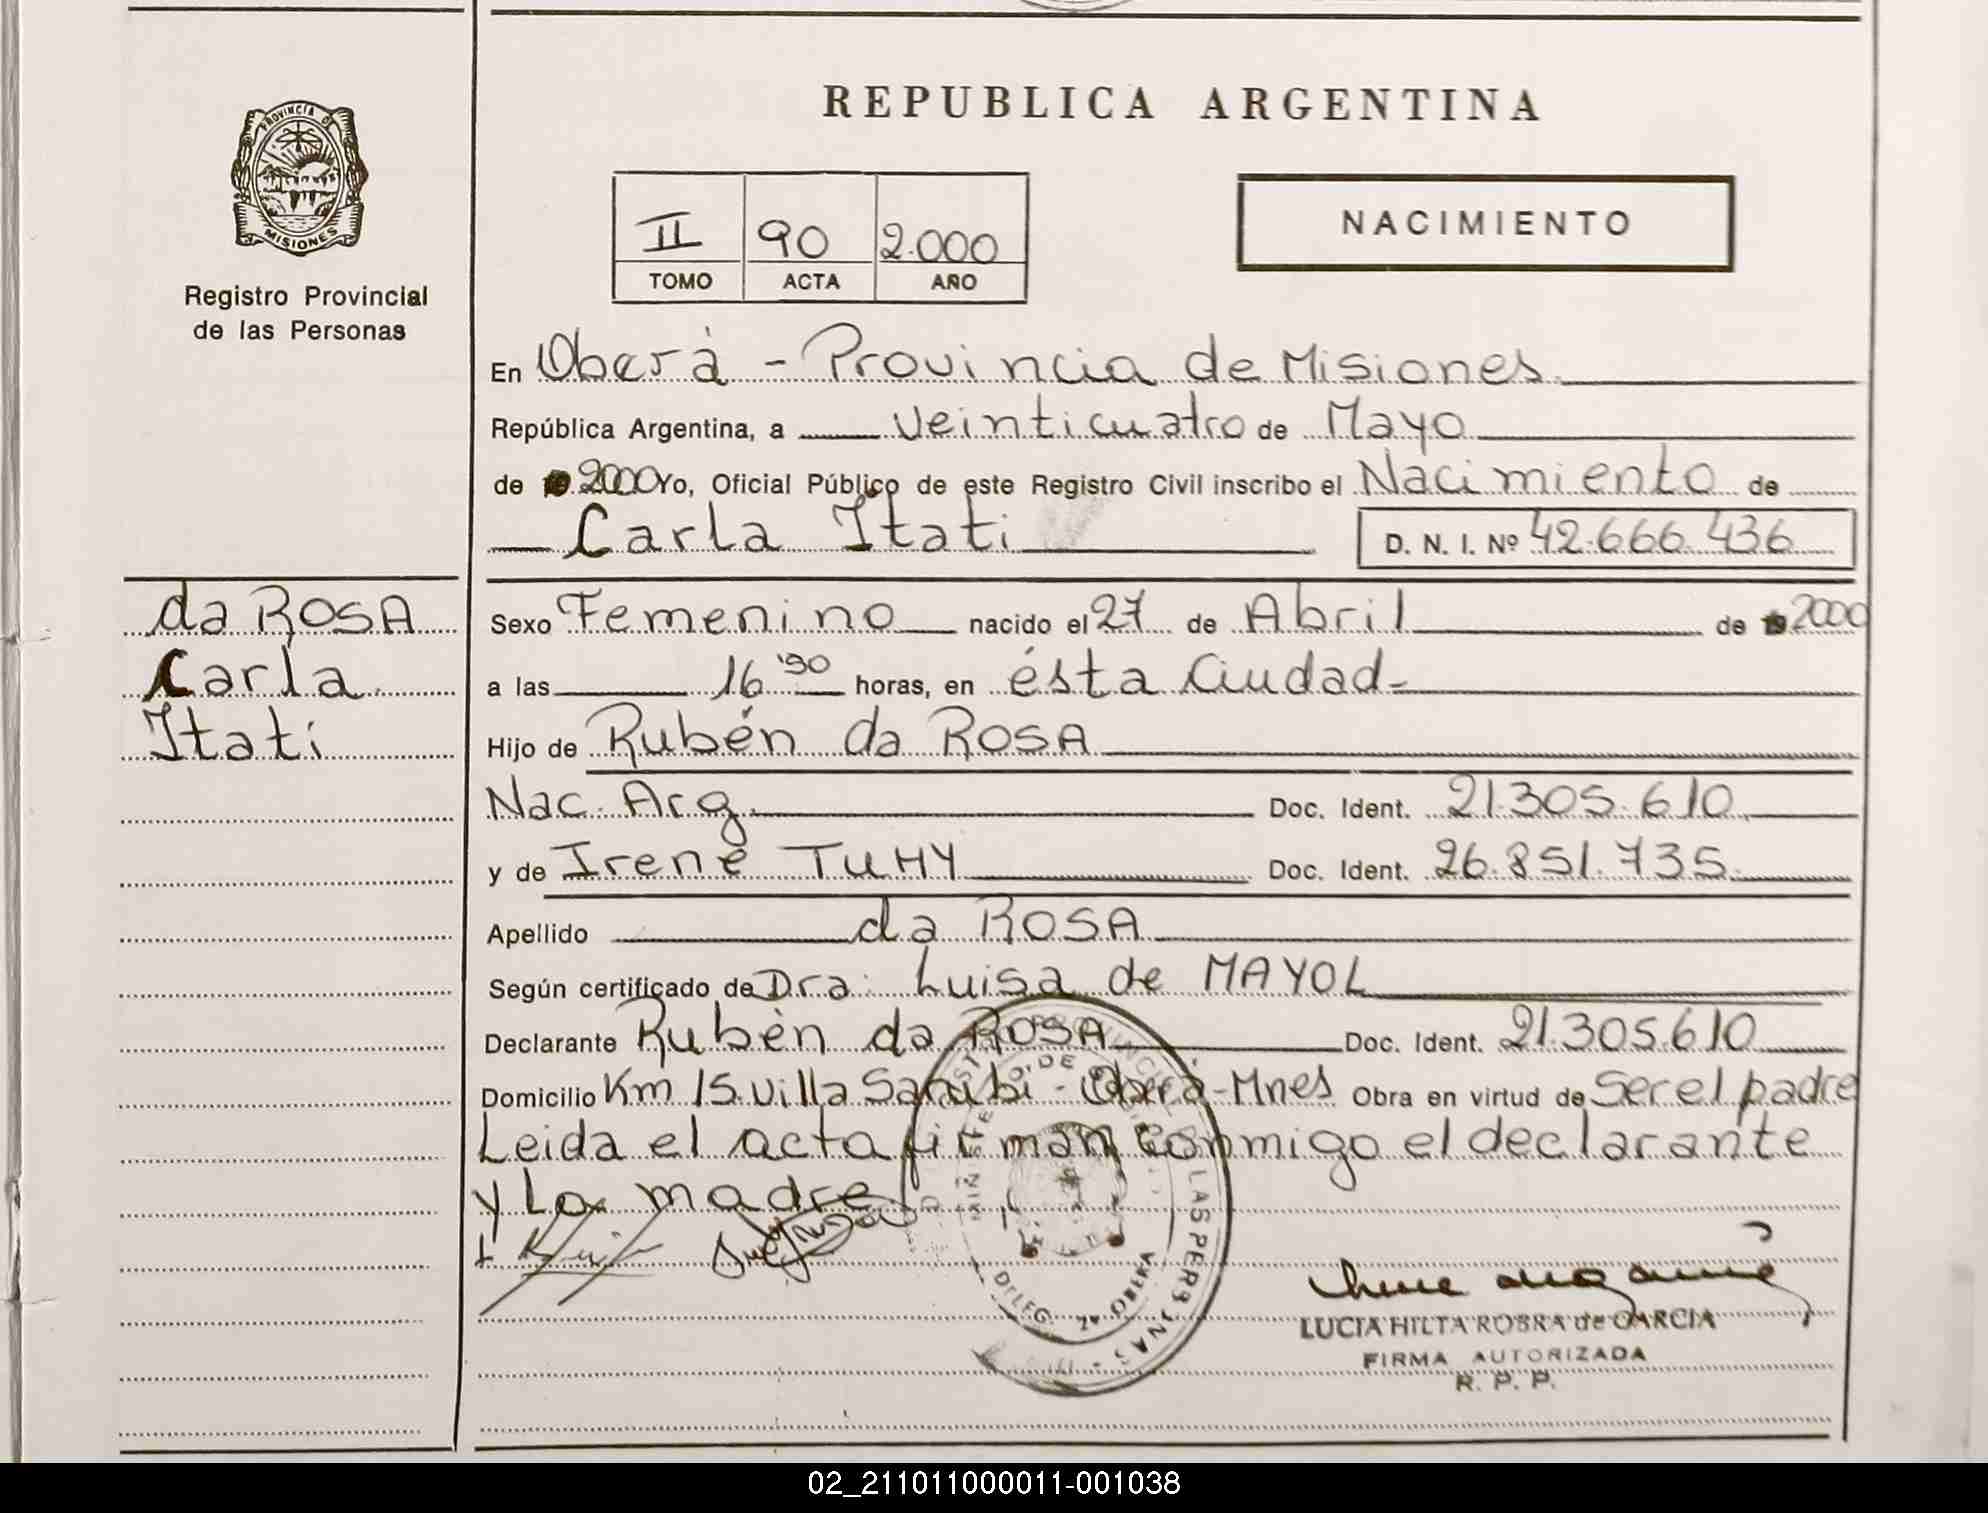 REPUBLICA ARGENTINA
PROVINCIA DE
MISIONES
Registro Provincial
de las Personas
II 90 2.000
TOMO ACTA AÑO
NACIMIENTO
En Oberá - Provincia de Misiones
República Argentina, a veinticuatro de Mayo
de 2000 Yo, Oficial Público de este Registro Civil inscribo el Nacimiento de
Carla Itatí
D. N. I. Nº 42.666.436
da ROSA
Carla
Itatí
Sexo Femenino nacido el 27 de Abril de 2000
a las 16 horas, en ésta Ciudad-
Hijo de Rubén da ROSA
Nac. Arg. Doc. Ident. 21.305.610
y de Irene TUHY Doc. Ident. 26.851.735
Apellido da ROSA
Según certificado de Dra: Luisa de MAYOL
Declarante Rubén da ROSA Doc. Ident. 21.305.610
Domicilio Km 15 Villa Sarubi - Oberá - Mnes Obra en virtud de Ser el padre
Leida el acta firman conmigo el declarante
y La madre
LUCIA HILTA ROBRA de GARCIA
FIRMA AUTORIZADA
R. P. P.
02_211011000011-001038